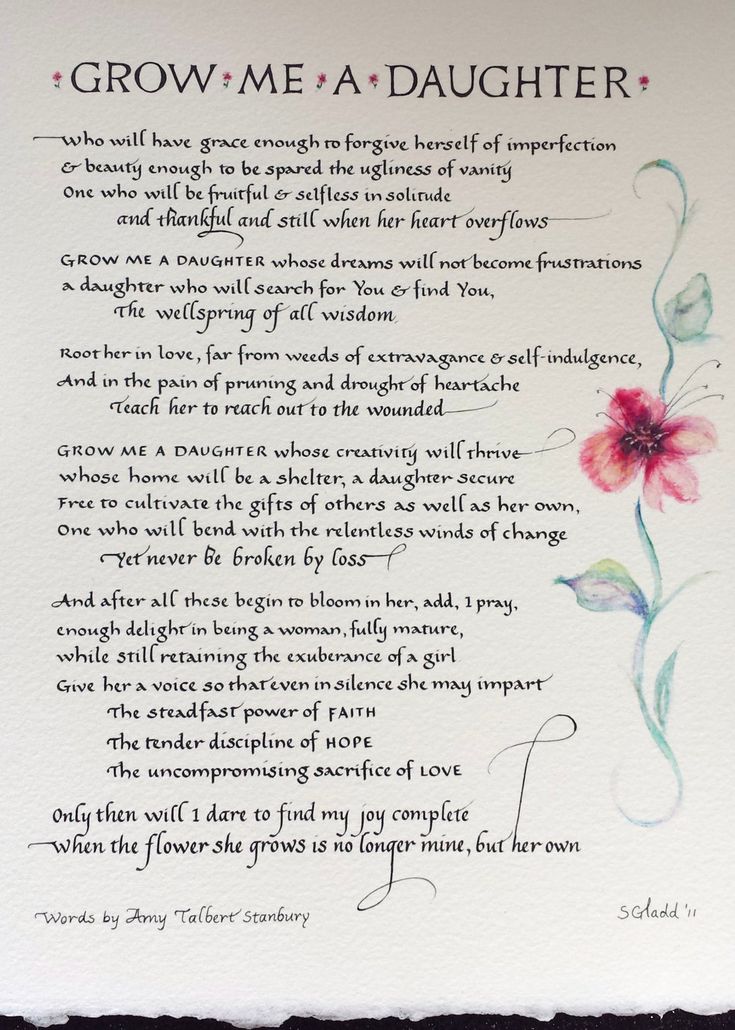 GROW ME A DAUGHTER
Who will have grace enough to forgive herself of imperfection
& beauty enough to be spared the ugliness of vanity
One who will be fruitful & selfless in solitude
and thankful and still when her heart overflows
GROW ME A DAUGHTER whose dreams will not become frustrations
a daughter who will search for You & find You,
The wellspring of all wisdom.
Root her in love, far from weeds of extravagance & self-indulgence,
And in the pain of pruning and drought of heartache
Teach her to reach out to the wounded
GROW ME A DAUGHTER whose creativity will thrive
whose home will be a shelter, a daughter secure
Free to cultivate the gifts of others as well as her own,
One who will bend with the relentless winds of change
Yet never be broken by loss
And after all these begin to bloom in her, add, I pray,
enough delight in being a woman, fully mature,
while still retaining the exuberance of a girl
Give her a voice so that even in silence she may impart
The steadfast power of FAITH
The tender discipline of HOPE
The uncompromising sacrifice of LOVE
Only then will I dare to find my joy complete
When the flower she grows is no longer mine, but her own
Words by Amy Talbert Stanbury
SGladd '11